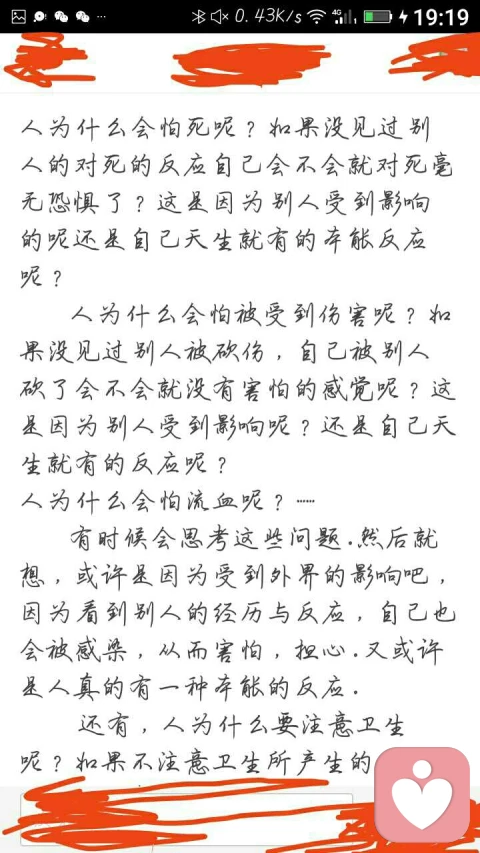 0.43K/s 4G 19:19
人为什么会怕死呢？如果没见过别
人的对死的反应自己会不会就对死毫
无恐惧了？这是因为别人受到影响
的呢还是自己天生就有的本能反应
呢？
人为什么会怕被受到伤害呢？如
果没见过别人被砍伤，自己被别人
砍了会不会就没有害怕的感觉呢？这
是因为别人受到影响呢？还是自己天
生就有的反应呢？
人为什么会怕流血呢？……
有时候会思考这些问题.然后就
想，或许是因为受到外界的影响吧，
因为看到别人的经历与反应，自己也
会被感染，从而害怕，担心.又或许
是人真的有一种本能的反应.
还有，人为什么要注意卫生
呢？如果不注意卫生所产生的